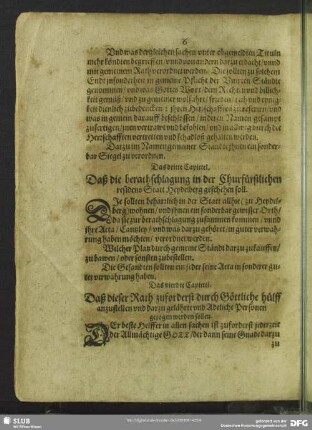 6
Vnd was dergleichen sachen vnter obgemeldten Tituln
mehr köndten begrieffen / vnd von andern darzu erdacht / vnnd
mit gemeinem Rath verordnet werden. Die sollen zu solchem
End insonderheit in gemeine Pflicht der Vnirten Ständt
genommen / vnd was Gottes Wort / dem Rechten vnd billich-
keit gemäß / vnd zu gemeiner wolfahrt / fried
dienlich zubedencken / ihren Herrschafften
was in gemein darauff beschlossen / in deren Namen gesampt
zufertigen / jhm vertrawt vnd befohlen / vnd
Herrschafften vertretten vnd schadloß gehalten werden.
Darzu im Namen gemeiner Ständt jhnen ein sonder-
bar Siegel zu verordnen.
Das dritte Capitel.
Daß die berathschlagung in der Churfürstlichen
residens Statt Heydelberg geschehen soll.
DIe sollen beharrlich in der Statt allhie / zu Heydel-
berg wohnen / vnd jhnen ein sonderbar gewisser Orth /
da sie zur berathschlagung zusammen kommen / vnnd
jhre Acta / Cantzley / vnd was darzu gehöret / in guter verwah-
rung haben möchten / verordnet werden.
Welcher Platz durch gemeine Ständt darzu zukauffen /
zu bawen / oder sonsten zubestellen.
Die Gesandten sollten ein jeder seine Acta in sonderer gu-
ter verwahrung haben.
Das vierdte Capitel.
Daß dieser Rath zuforderst durch Göttliche hülff
anzustellen vnd darzu gelährte vnd Adeliche Personen
gezogen werden sollen.
DEr beste Helffer in allen sachen ist zuforderst jederzeit
der Allmächtige GOTT / der dann seine Gnade darzu
zu
SLUB
Wir führen Wissen.
gefördert von der
Deutschen Forschungsgemeinschaft
DFG